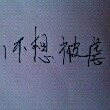 不想被虐